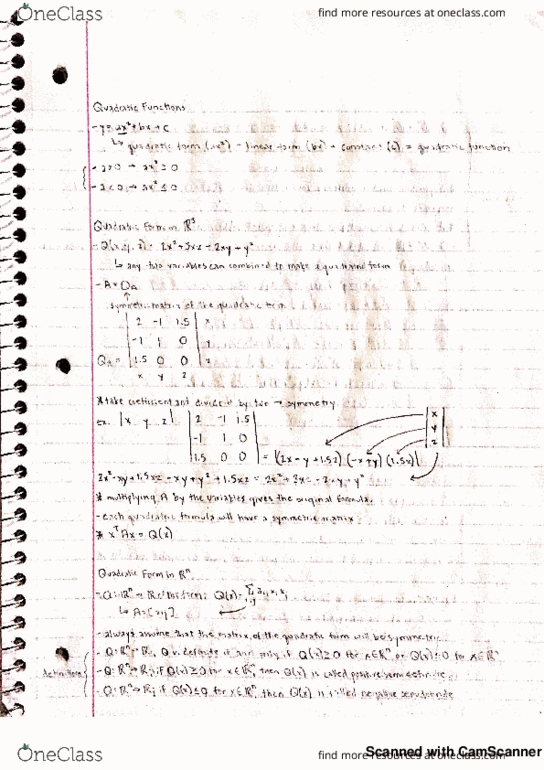 OneClass
find more resources at oneclass.com
Quadratic Functions
- y = ax² + bx + c
↳ quadratic form (ax²) - linear form (bx) + constant (c) = quadratic function
- a>0 → ax² ≥ 0
- a<0 → ax² ≤ 0
Quadratic Form in R³
- Q(x, y, z) = 2x² + 3xz - 2xy + y²
↳ any two variables can combined to make a quadratic form
- A =
symmetric matrix of the quadratic form
2 -1 1.5 x
-1 1 0 y
1.5 0 0 z
x y z
* take coefficient and divided by two → symmetry
ex. |x y z| 2 -1 1.5
-1 1 0
1.5 0 0
= |(2x - y + 1.5z) (-x+y) (1.5x)|
x
y
z
2x² - xy + 1.5xz - xy + y² + 1.5xz = 2x² + 3xz - 2xy + y²
* multiplying A by the variables gives the original formula.
- each quadratic formula will have a symmetric matrix
* xᵀAx = Q(x)
Quadratic Form in Rⁿ
- Q: Rⁿ → R
- always assume that the matrix of the quadratic form will be symmetric
definitions
- Q: Rⁿ → R, Q definite if and only if Q(x) ≥ 0 for x∈Rⁿ or Q(x) ≤ 0 for x∈Rⁿ
- Q: Rⁿ → R; if Q(x) ≥ 0 for x∈Rⁿ, then Q(x) is called positive semidefinite
- Q: Rⁿ → R; if Q(x) ≤ 0 for x∈Rⁿ, then Q(x) is called negative semidefinite
OneClass
find more resources at oneclass.com
Scanned with CamScanner